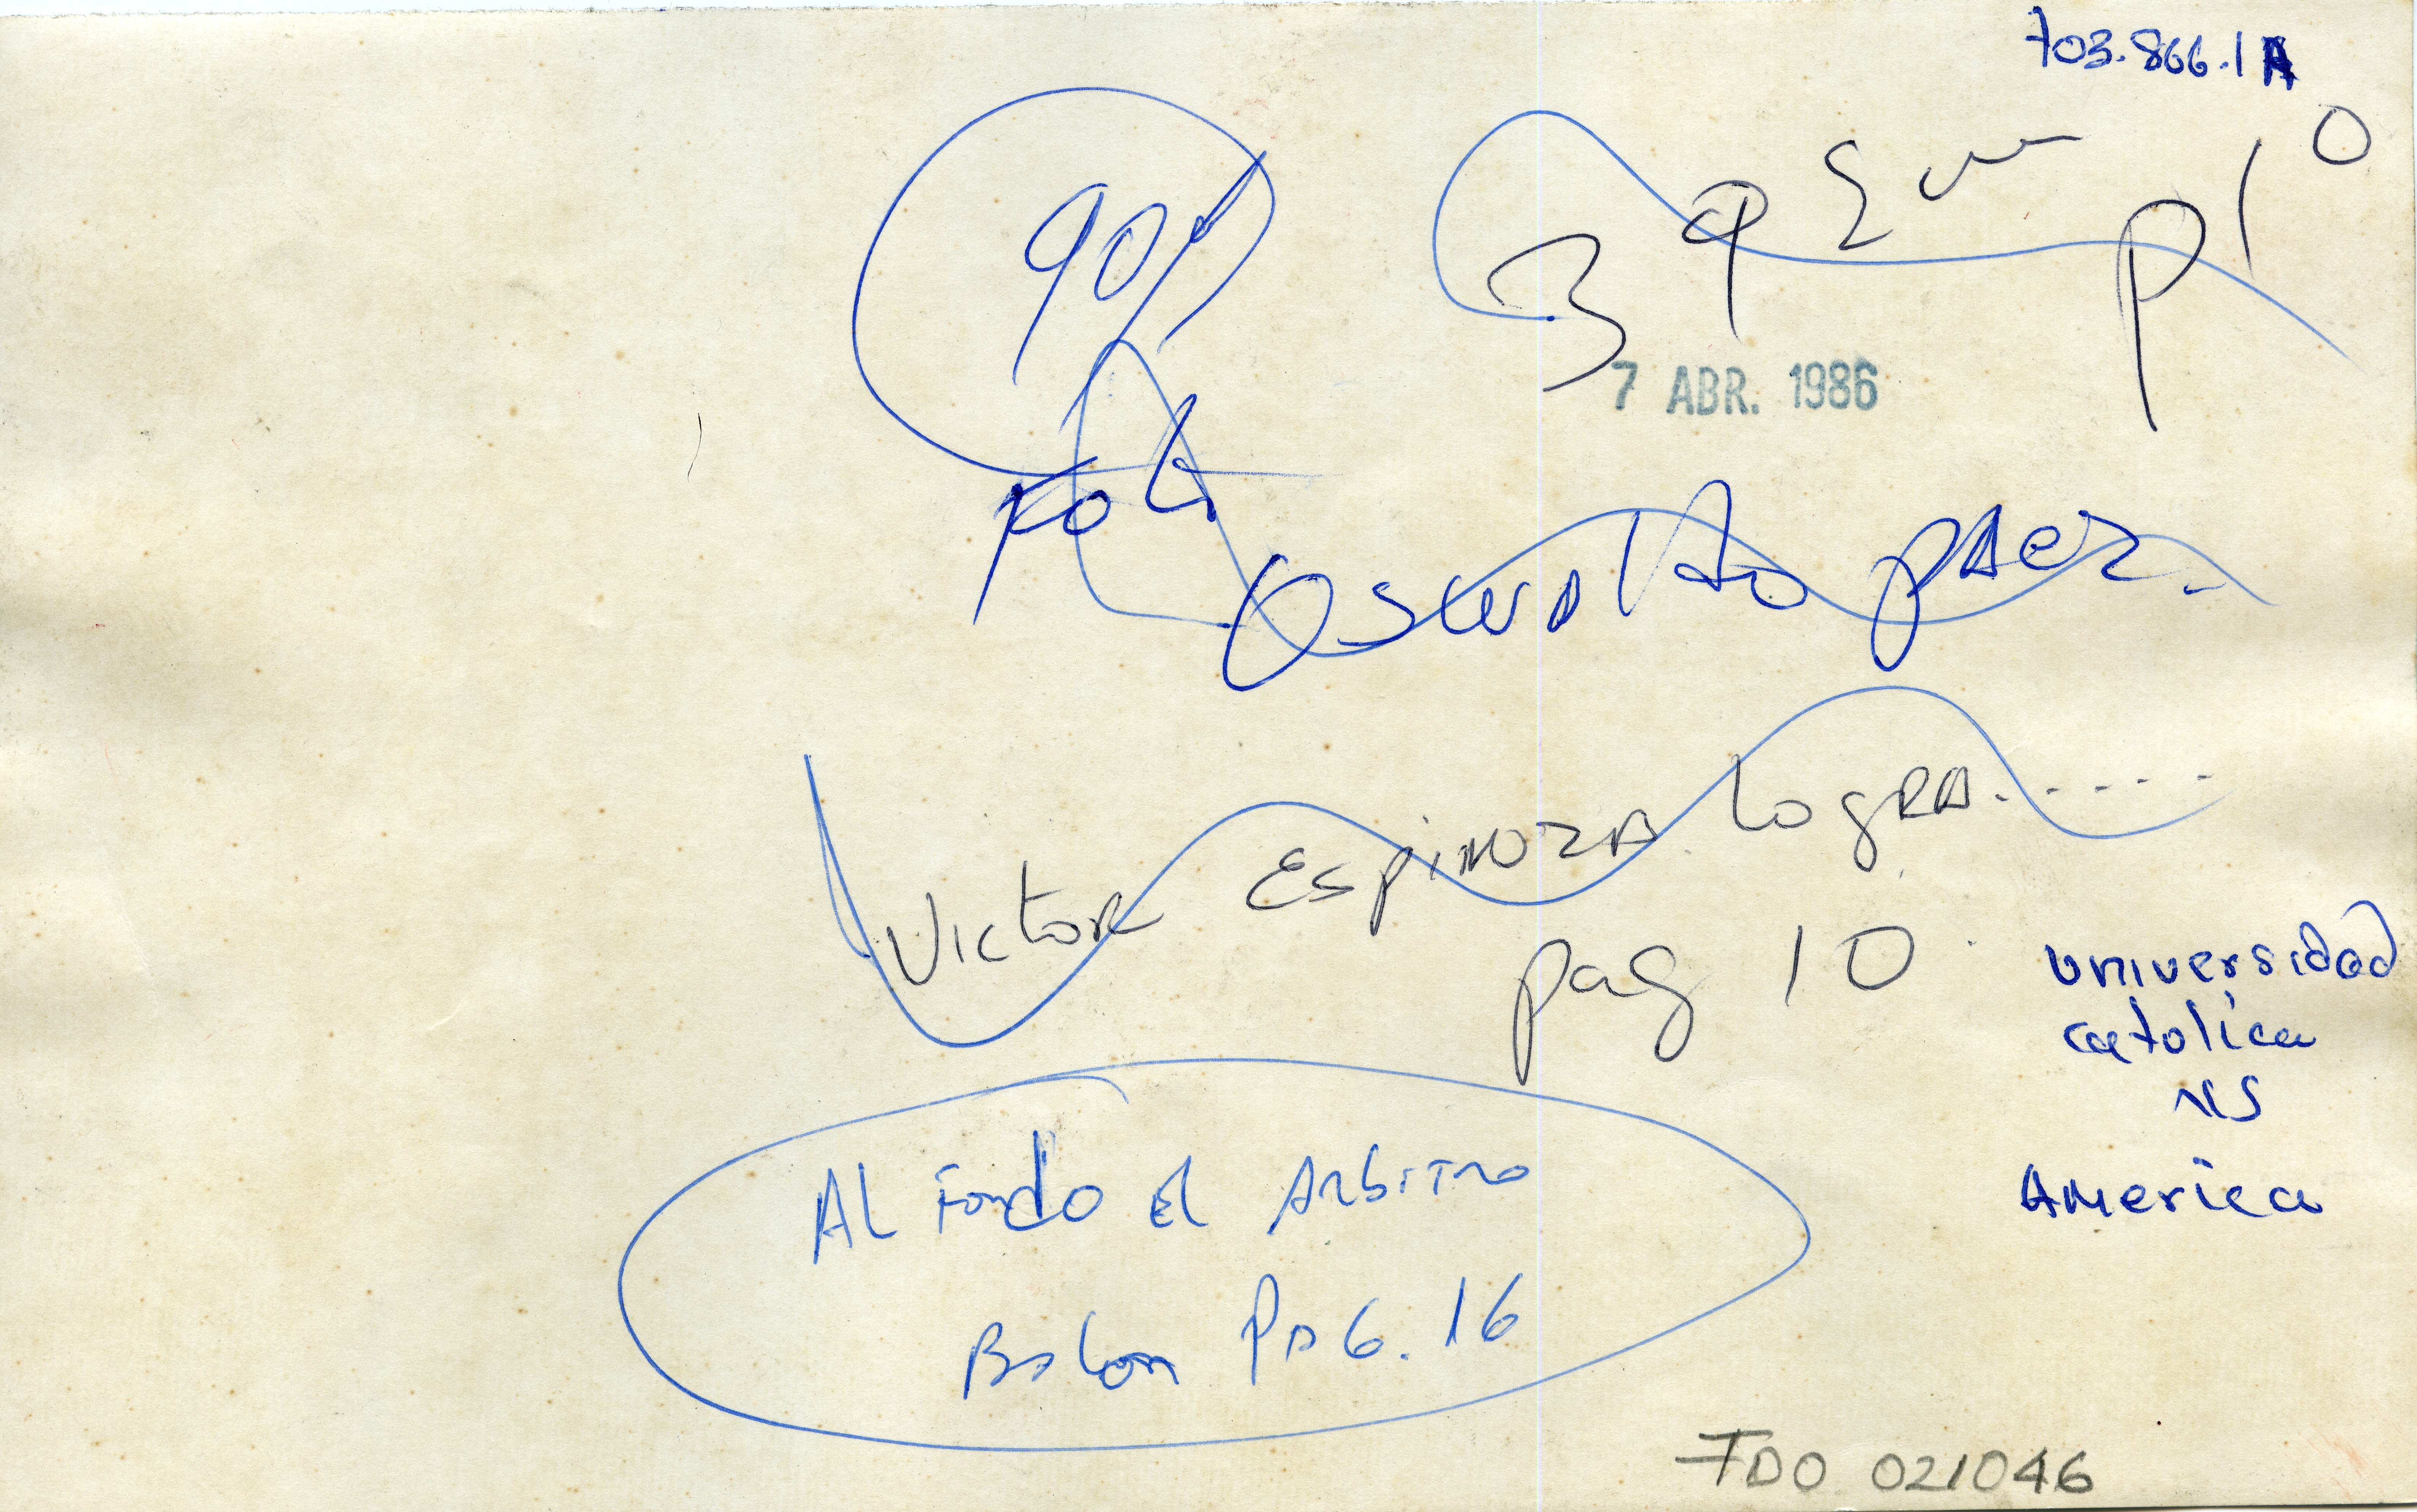 703.866.1A
90%
3 9 P10
7 ABR. 1986
Foto
Oswaldo pAez.
Victor EspinozA logRA......
pag 10
universidad
catolica
VS
America
AL Fondo el Arbitro
BALon PAG. 16
FDO 021046